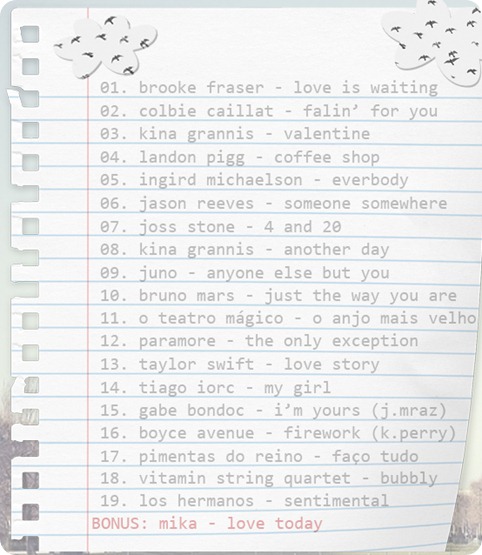 01. brooke fraser - love is waiting
02. colbie caillat - falin’ for you
03. kina grannis - valentine
04. landon pigg - coffee shop
05. ingird michaelson - everbody
06. jason reeves - someone somewhere
07. joss stone - 4 and 20
08. kina grannis - another day
09. juno - anyone else but you
10. bruno mars - just the way you are
11. o teatro mágico - o anjo mais velho
12. paramore - the only exception
13. taylor swift - love story
14. tiago iorc - my girl
15. gabe bondoc - i’m yours (j.mraz)
16. boyce avenue - firework (k.perry)
17. pimentas do reino - faço tudo
18. vitamin string quartet - bubbly
19. los hermanos - sentimental
BONUS: mika - love today